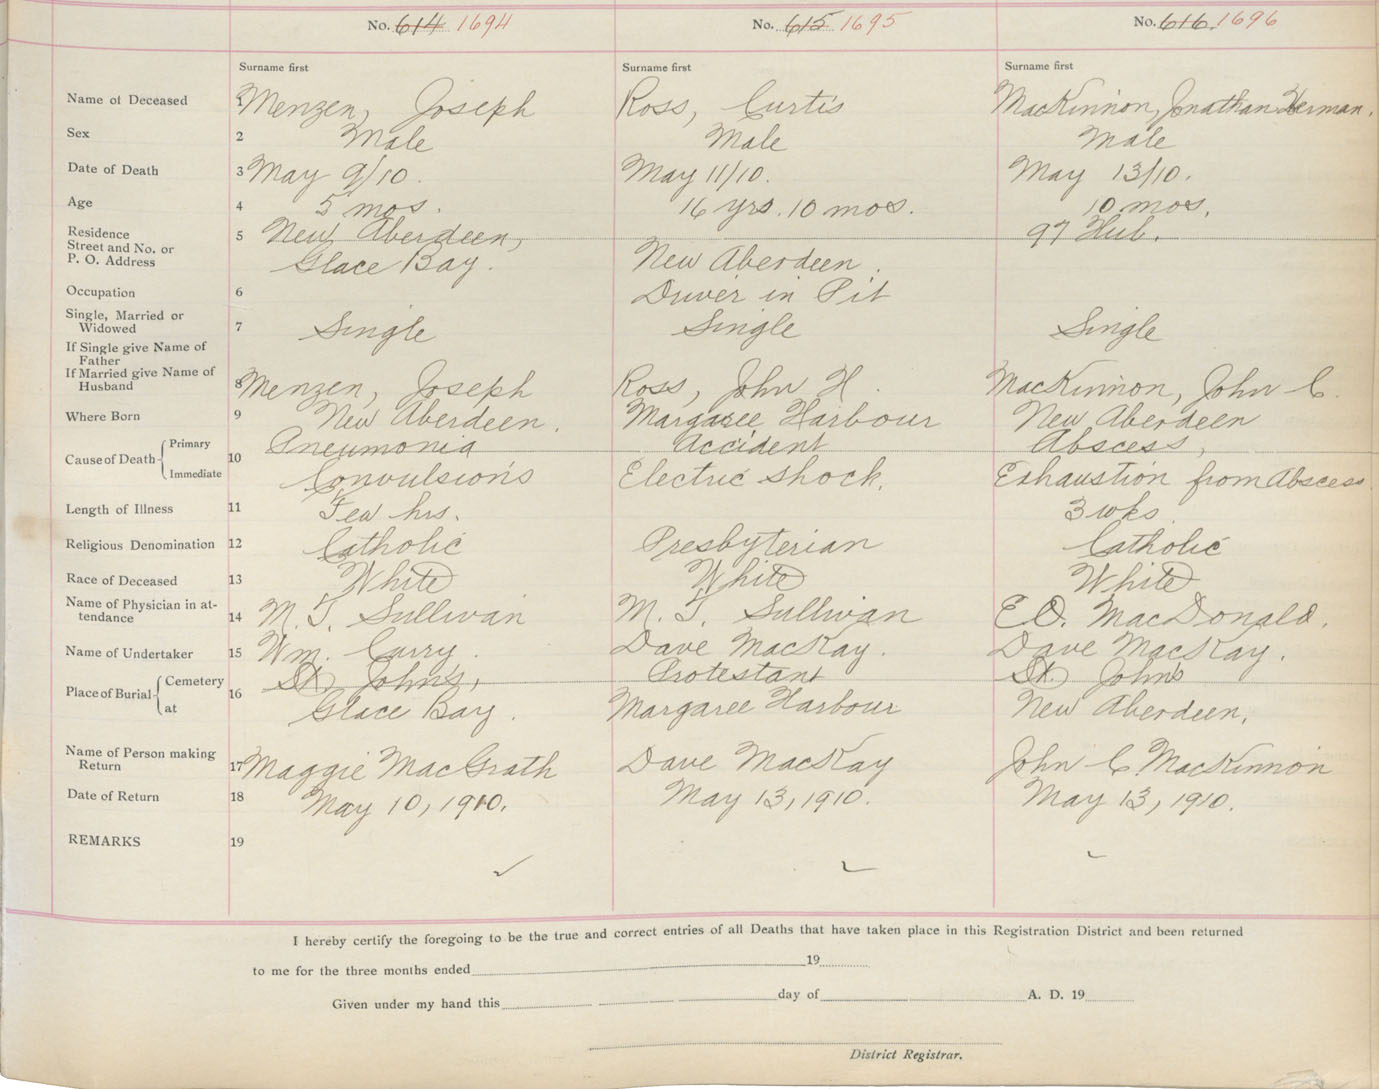 No. 614 1694 No. 615 1695 No. 616. 1696
Surname first Surname first Surname first
Name of Deceased 1 Menzen, Joseph Ross, Curtis MacKinnon, Jonathan Herman.
Sex 2 Male Male Male
Date of Death 3 May 9/10. May 11/10. May 13/10.
Age 4 5 mos. 16 yrs. 10 mos. 10 mos.
Residence 5 New Aberdeen, 97 Hub.
Street and No. or
P. O. Address Glace Bay. New Aberdeen.
Occupation 6 Driver in Pit
Single, Married or
Widowed 7 Single Single Single
If Single give Name of
Father
If Married give Name of
Husband 8 Menzen, Joseph Ross, John H. MacKinnon, John C.
Where Born 9 New Aberdeen. Margaree Harbour New Aberdeen
Cause of Death Primary 10 Pneumonia Accident Abscess,
Immediate Convulsions Electric shock. Exhaustion from Abscess.
Length of Illness 11 Few hrs. 3 wks
Religious Denomination 12 Catholic Presbyterian Catholic
Race of Deceased 13 White White White
Name of Physician in at-
tendance 14 M. T. Sullivan M. T. Sullivan E. O. MacDonald.
Name of Undertaker 15 Wm. Curry. Dave MacKay. Dave MacKay.
Place of Burial Cemetery 16 St. John's, Protestant St. John's
at Glace Bay. Margaree Harbour New Aberdeen.
Name of Person making
Return 17 Maggie MacGrath Dave MacKay John C. MacKinnon
Date of Return 18 May 10, 1910. May 13, 1910. May 13, 1910.
REMARKS 19
I hereby certify the foregoing to be the true and correct entries of all Deaths that have taken place in this Registration District and been returned
to me for the three months ended 19
Given under my hand this day of A. D. 19
District Registrar.